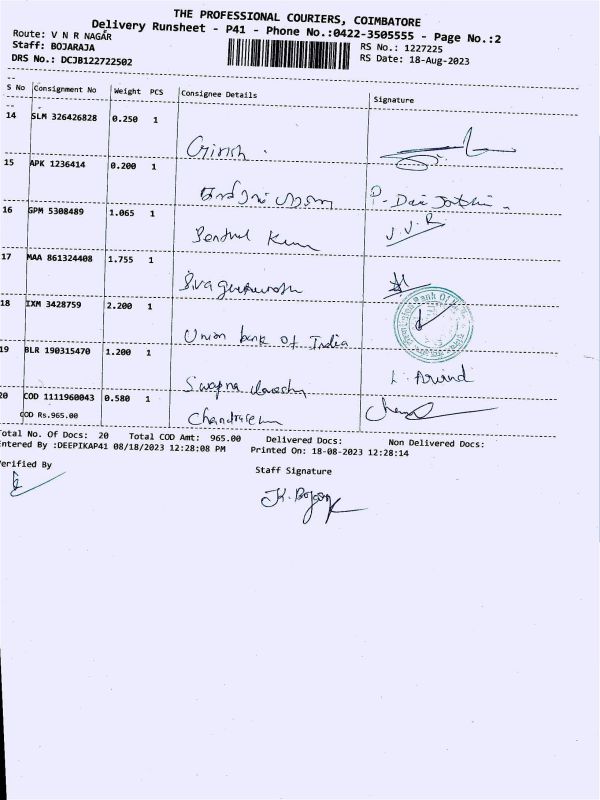 THE PROFESSIONAL COURIERS, COIMBATORE
Delivery Runsheet - P41 - Phone No.:0422-3505555 - Page No.:2
Route: V N R NAGAR
RS No.: 1227225
Staff: BOJARAJA
RS Date: 18-Aug-2023
DRS No.: DCJB122722502
S No Consignment No Weight PCS Consignee Details Signature
14 SLM 326426828 0.250 1
Girish.
15 APK 1236414 0.200 1
16 GPM 5308489 1.065 1
J.V.R
17 MAA 861324408 1.755 1
18 IXM 3428759 2.200 1
Union bank of India
19 BLR 190315470 1.200 1
Swapna
L. Arvind
20 COD 1111960043 0.580 1
COD Rs.965.00
Total No. Of Docs: 20 Total COD Amt: 965.00 Delivered Docs: Non Delivered Docs:
Entered By :DEEPIKAP41 08/18/2023 12:28:08 PM Printed On: 18-08-2023 12:28:14
Verified By
Staff Signature